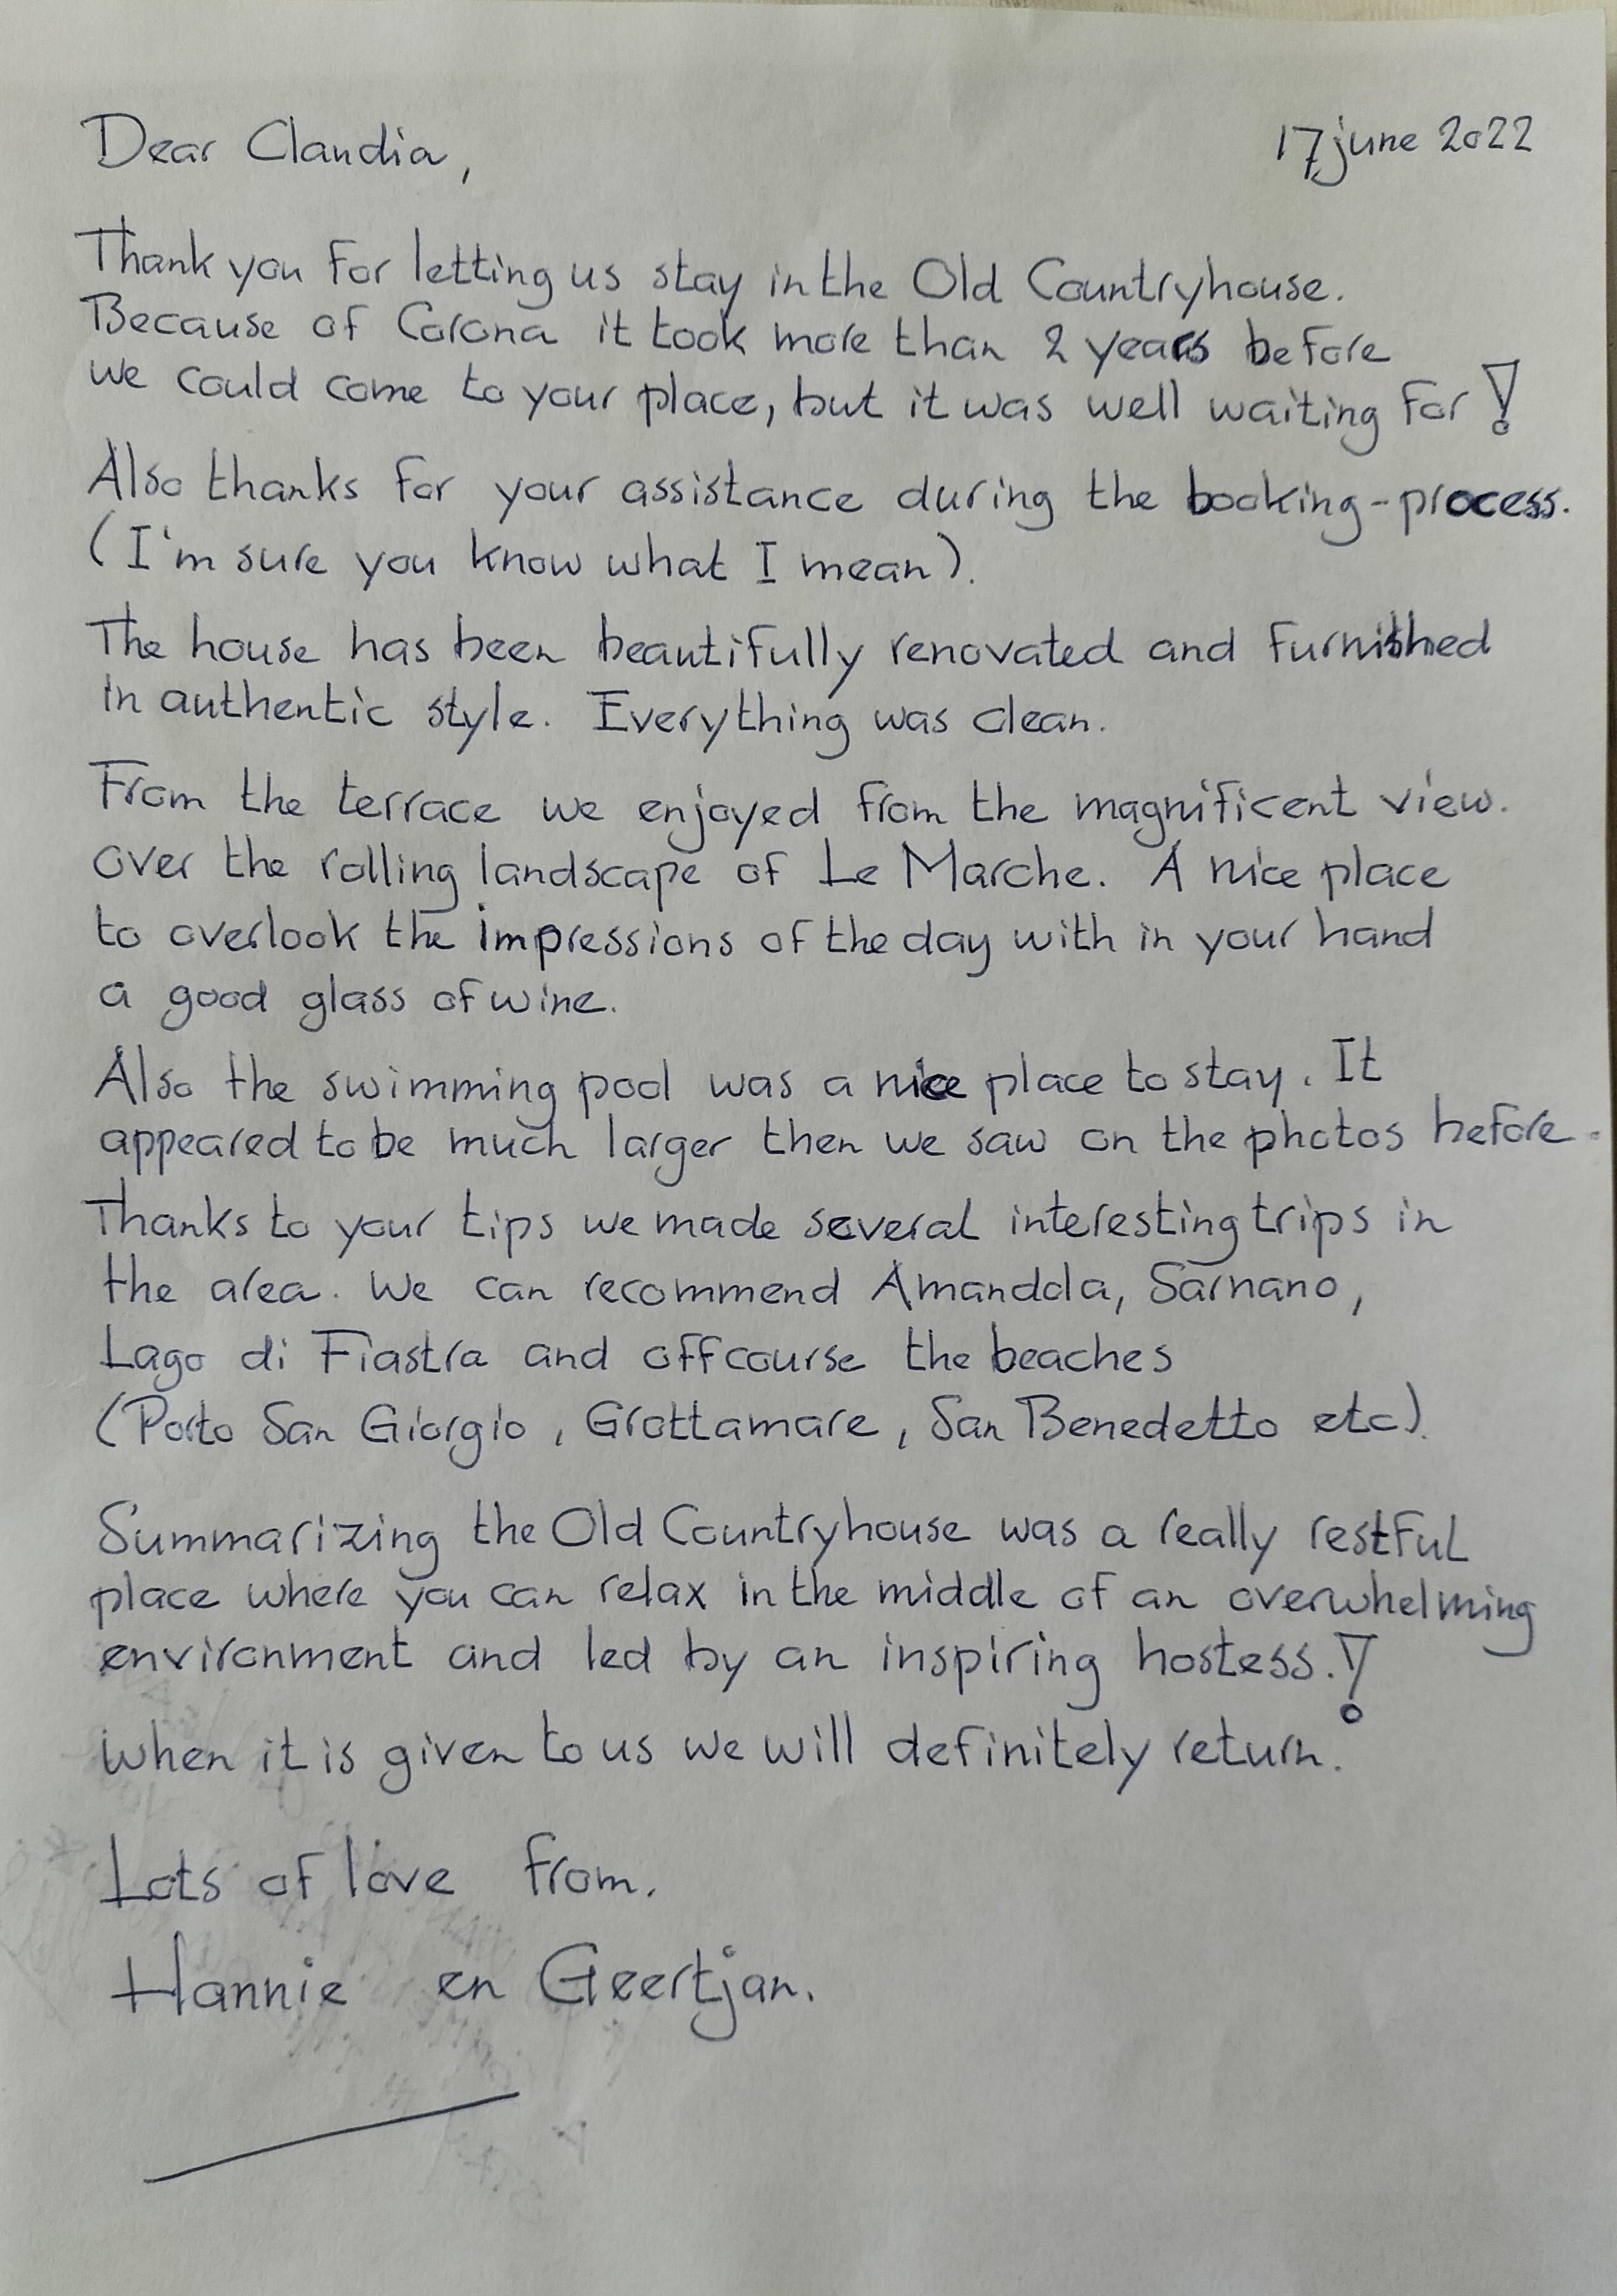 Dear Claudia,
17 june 2022
Thank you for letting us stay in the Old Countryhouse.
Because of Corona it took more than 2 years before
we could come to your place, but it was well waiting for!
Also thanks for your assistance during the booking-process.
(I'm sure you know what I mean).
The house has been beautifully renovated and furnished
in authentic style. Everything was clean.
From the terrace we enjoyed from the magnificent view.
over the rolling landscape of Le Marche. A nice place
to overlook the impressions of the day with in your hand
a good glass of wine.
Also the swimming pool was a nice place to stay. It
appeared to be much larger then we saw on the photos before.
Thanks to your tips we made several interesting trips in
the area. We can recommend Amandola, Sarnano,
Lago di Fiastra and offcourse the beaches
(Porto San Giorgio, Grottamare, San Benedetto etc).
Summarizing the Old Countryhouse was a really restful
place where you can relax in the middle of an overwhelming
environment and led by an inspiring hostess.!
When it is given to us we will definitely return.
Lots of love from.
Hannie en Geertjan.